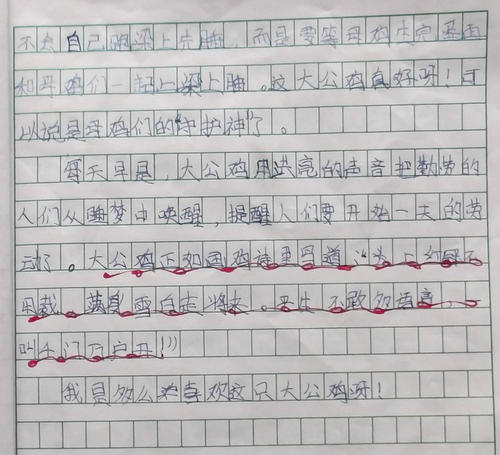 不去自己跑梁上先睡，而是要等母鸡生完蛋再
和母鸡们一起上梁上睡。这大公鸡真好呀！可
以说是母鸡们的“守护神”了。
每天早晨，大公鸡用洪亮的声音把勤劳的
人们从睡梦中唤醒，提醒人们要开始一天的劳
动了。大公鸡正如画鸡诗里写道：“头上红冠不
用裁，满身雪白走将来。平生不敢多语言，一
叫千门万户开！”
我是多么喜欢这只大公鸡呀！